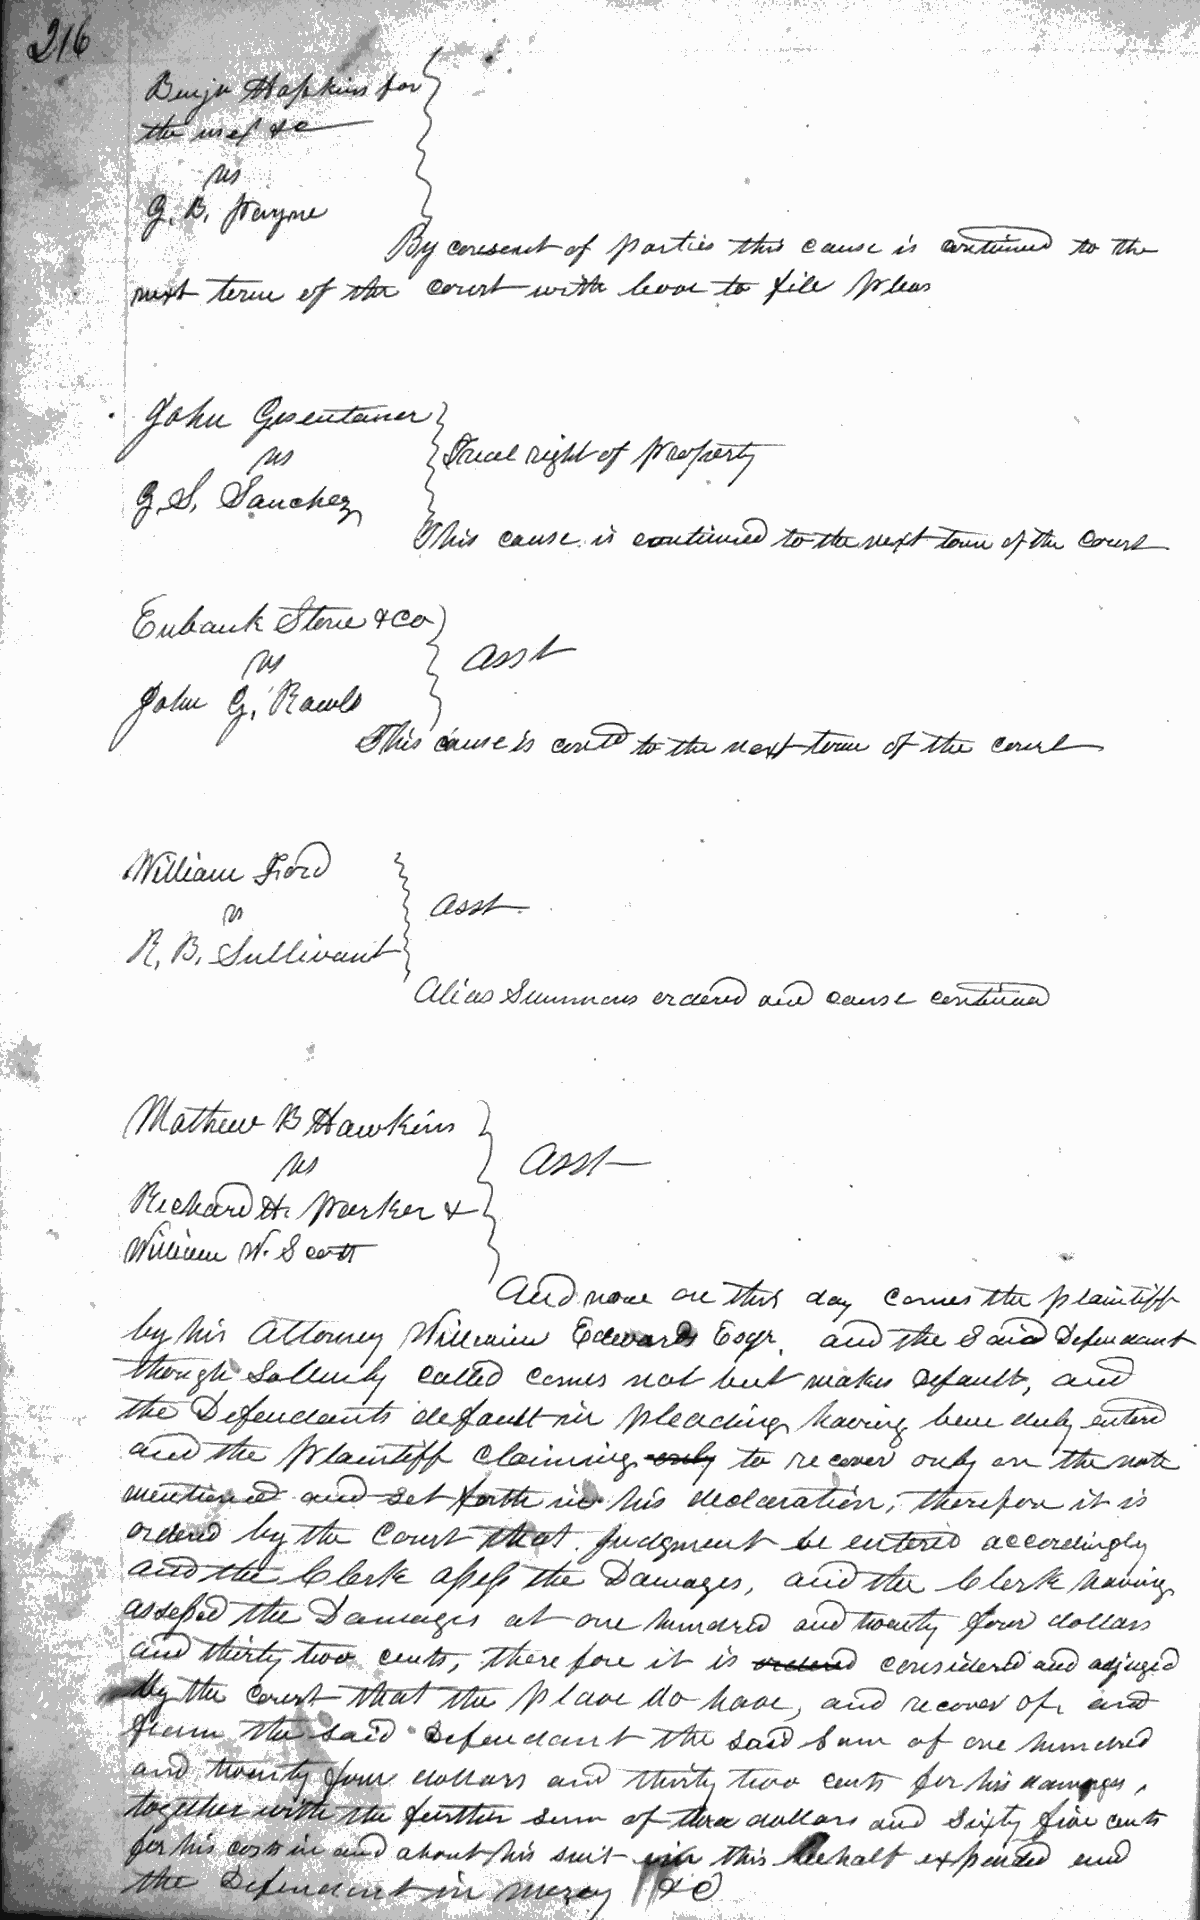 216
Benja Hopkins for
the use &c
vs
G. B. Payne
By consent of parties this cause is continued to the
next term of the court with leave to file pleas
John
vs
G. S. Sanchez
Trial right of property
This cause is continued to the next term of the court
Eubank Stone & Co
vs
John G. Rawls
asst
This cause is contd to the next term of the court
William Ford
vs
R. B. Sullivant
asst
Alias Summons ordered and cause continued
Mathew B Hawkins
vs
Richard H. Parker &
William W. Scott
asst
And now on this day comes the plaintiff
by his Attorney William Edwards Esqr. and the Said Defendant
though Sollemly called comes not but makes Default, and
the Defendants default in pleading having been duly entered
and the Plaintiff claiming only to recover only on the note
mentioned and set forth in his declaration, therefore it is
ordered by the Court that Judgment be entered accordingly
and the Clerk assess the Damages, and the Clerk having
assessed the Damages at one hundred and twenty four dollars
and thirty two cents, therefore it is ordered considered and adjuged
by the court that the plave do have, and recover of and
from the said Defendant the said Sum of one hundred
and twenty four dollars and thirty two cents for his damages,
together with the further sum of dollars and Sixty five cents
for his costs in and about his suit in this behalf expended and
the Defendant in mercy &c